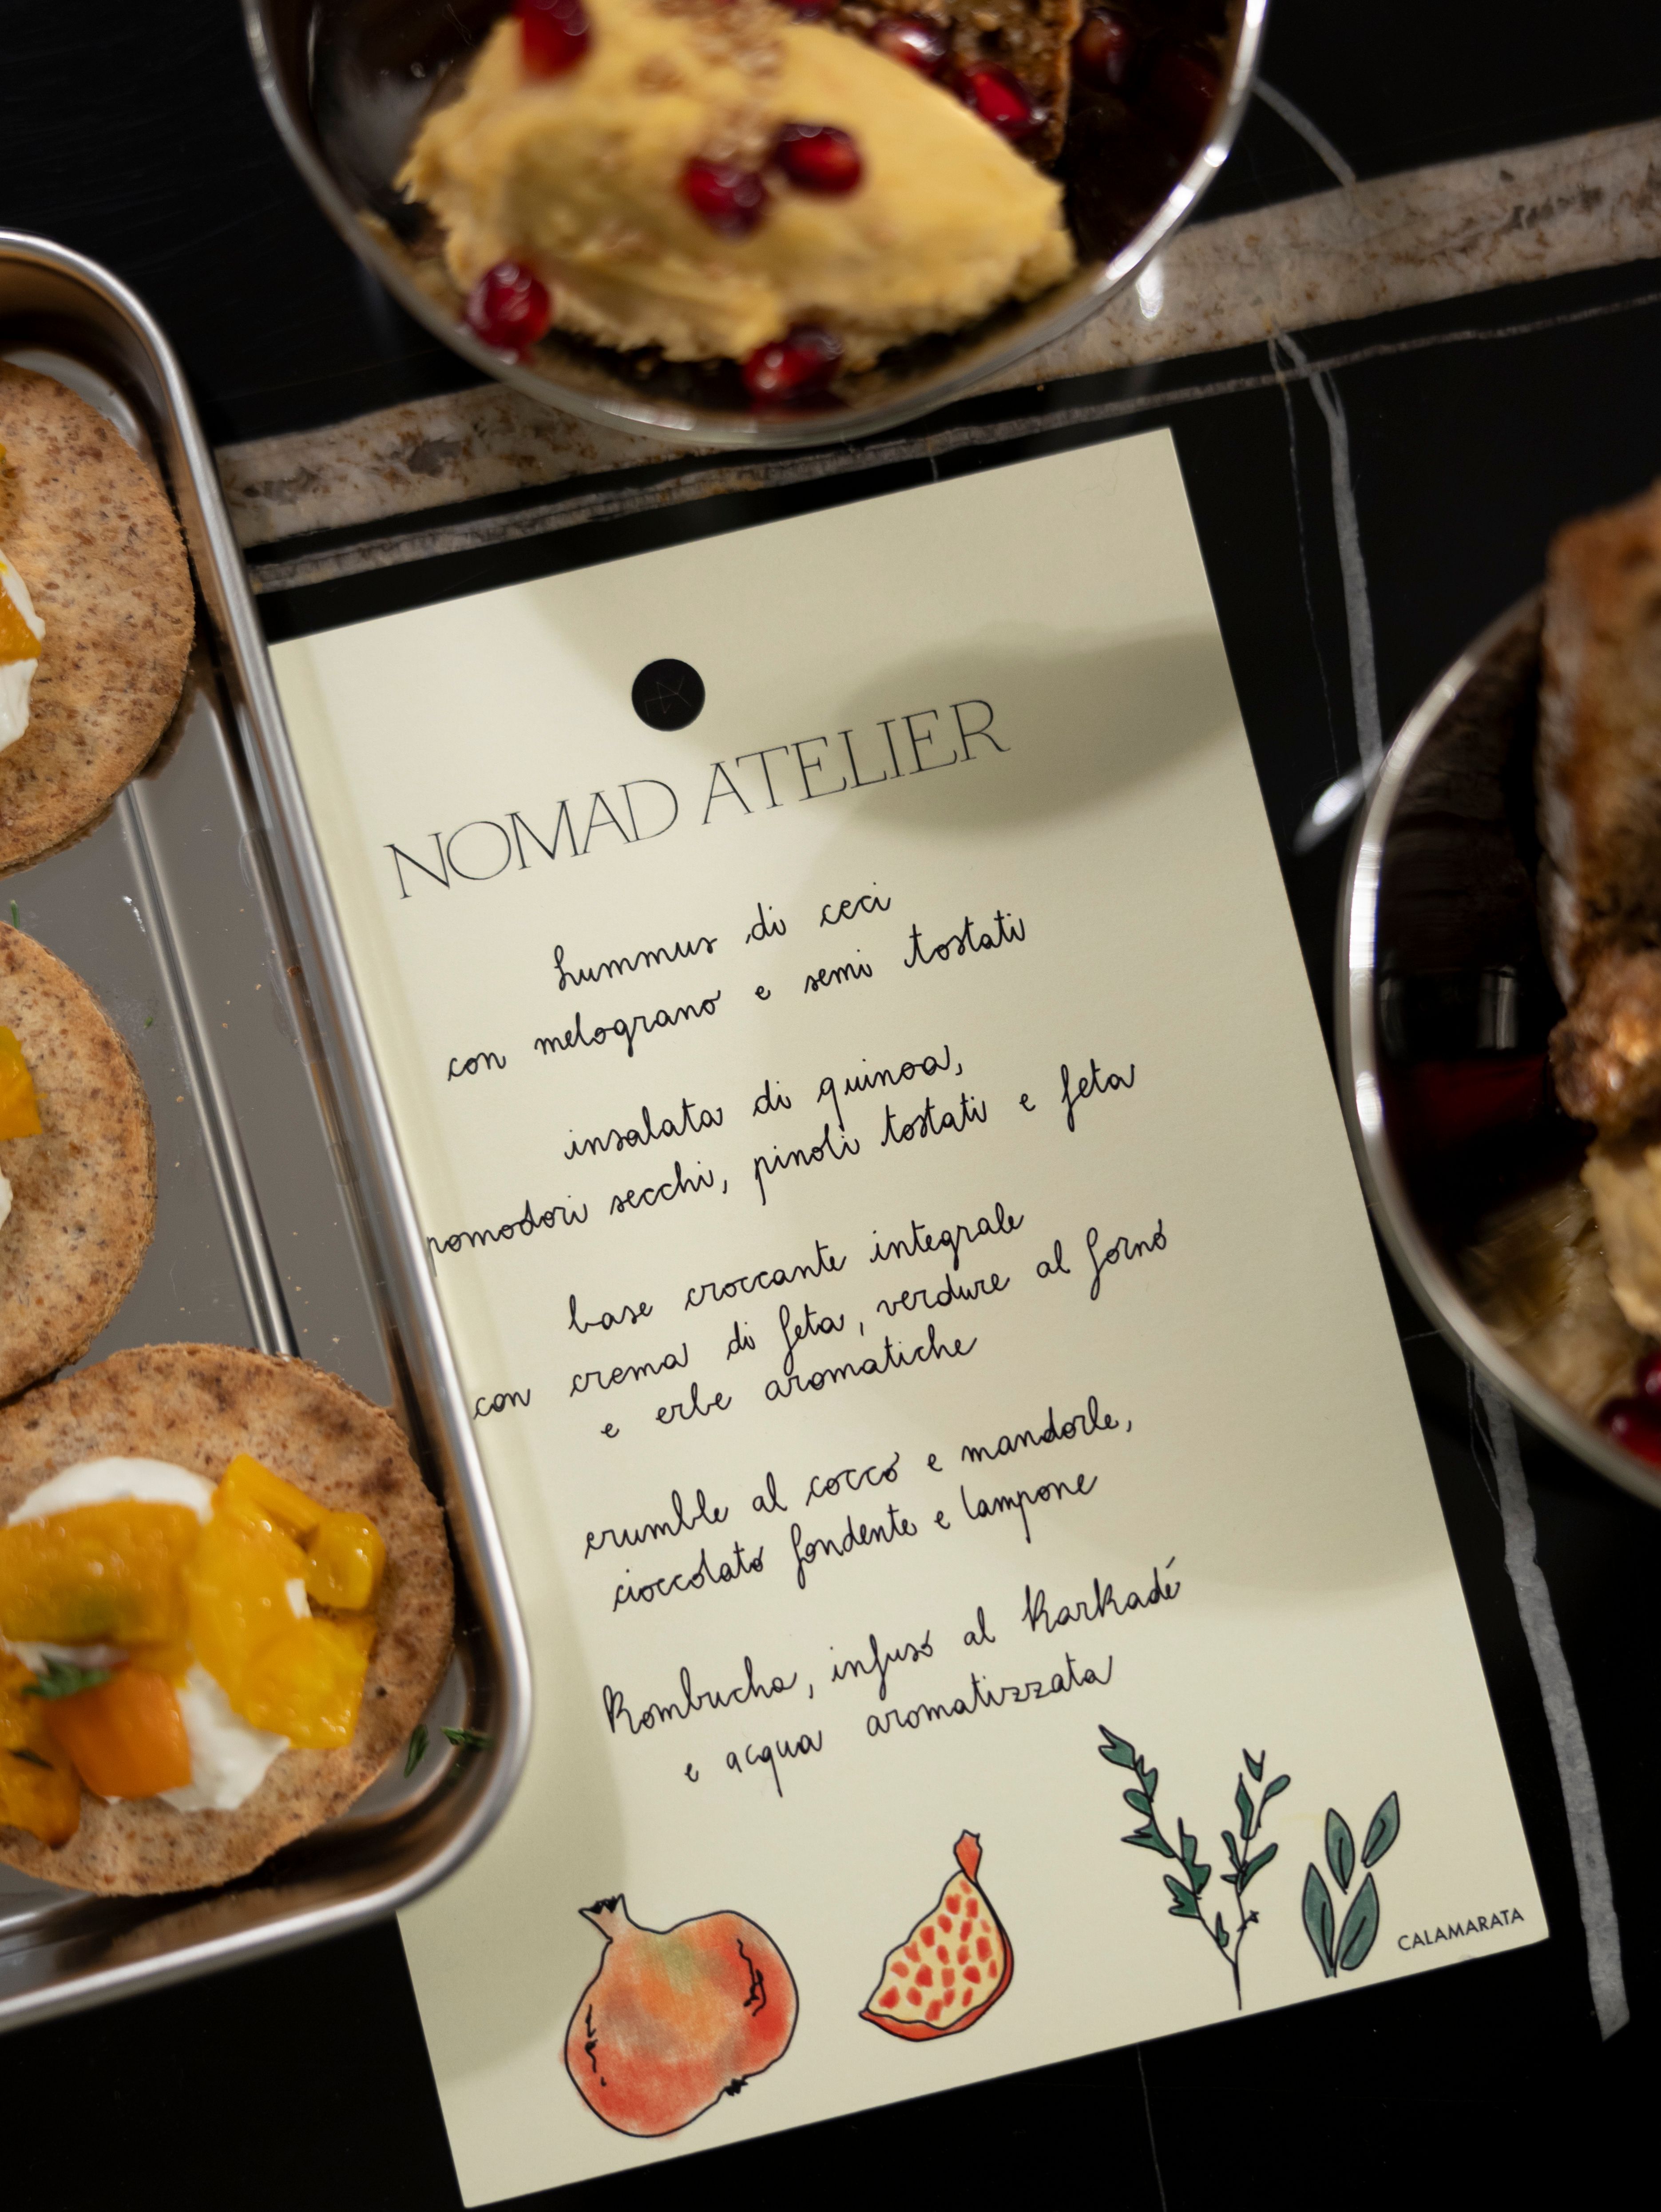 NOMAD ATELIER
hummus di ceci
con melograno e semi tostati
insalata di quinoa,
pomodori secchi, pinoli tostati e feta
base croccante integrale
con crema di feta, verdure al forno
e erbe aromatiche
crumble al cocco e mandorle,
cioccolato fondente e lampone
Kombucha, infuso al Karkadé
e acqua aromatizzata
CALAMARATA